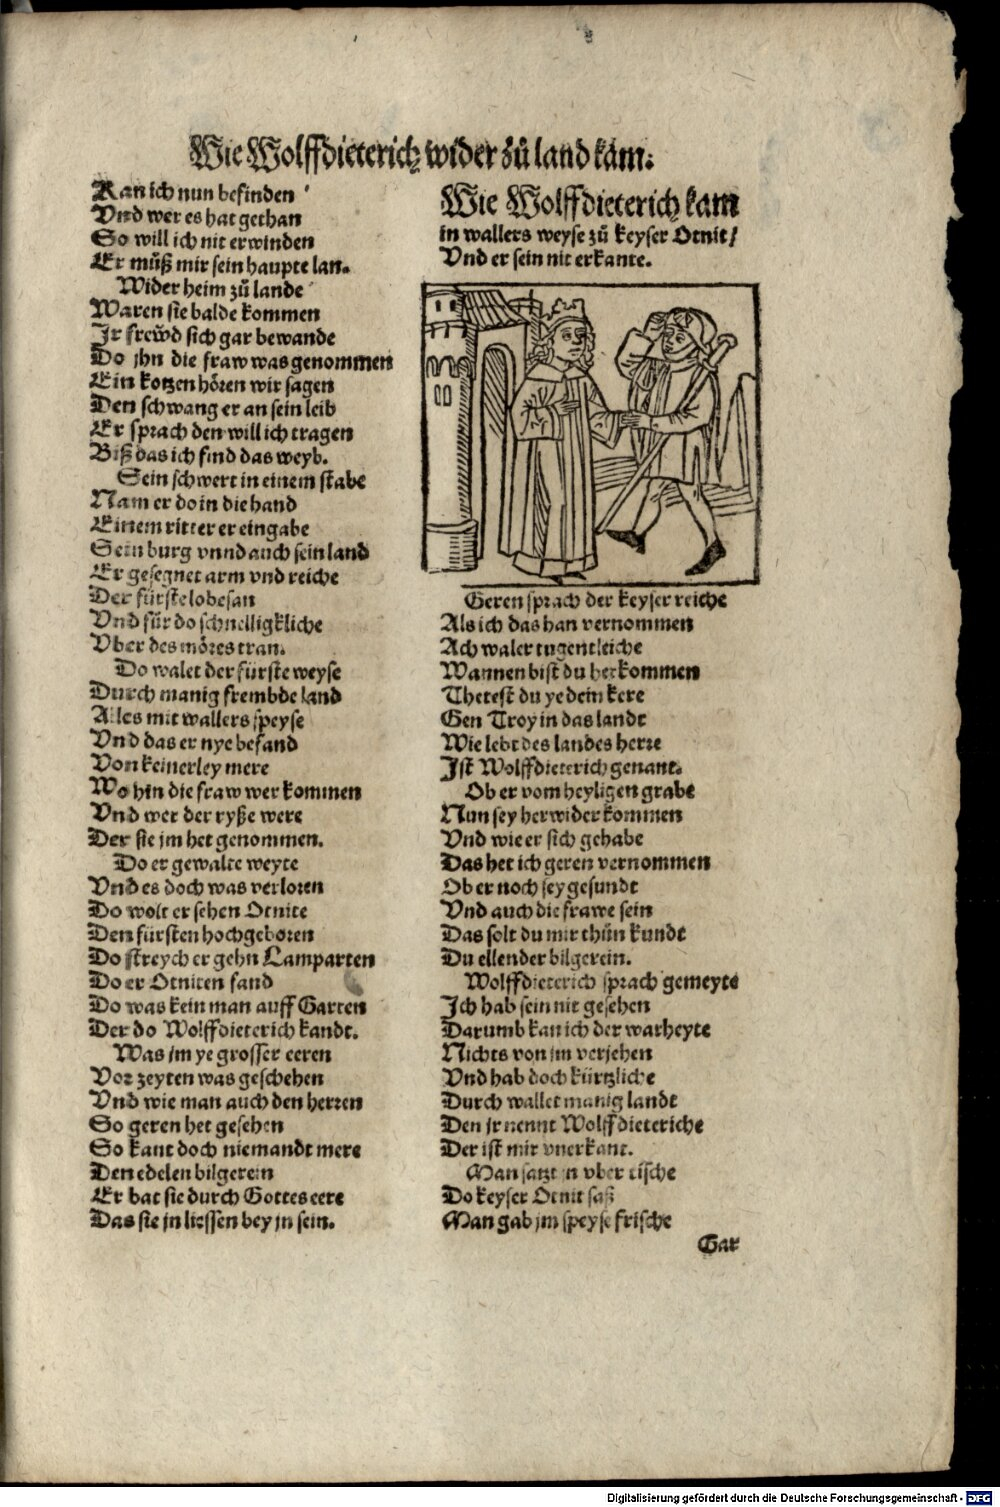 Wie Wolffdieterich wider zů land kam.
Kan ich nun befinden
Vnd wer es hat gethan
So will ich nit erwinden
Er můß mir sein haupte lan.
Wider heim zů lande
Waren sie balde kommen
Jr frewd sich gar bewande
Do jhn die fraw was genommen
Ein kotzen hören wir sagen
Den schwang er an sein leib
Er sprach den will ich tragen
Biß das ich find das weyb.
Sein schwert in einem stabe
Nam er do in die hand
Einem ritter er eingabe
Sein burg vnnd auch sein land
Er gesegnet arm vnd reiche
Der fürste lobesan
Vnd für do schnelligkliche
Vber des möres tran.
Do walet der fürste weyse
Durch manig frembde land
Alles mit wallers speyse
Vnd das er nye befand
Von keinerley mere
Wo hin die fraw wer kommen
Vnd wer der ryße were
Der sie jm het genommen.
Do er gewalte weyte
Vnd es doch was verloren
Do wolt er sehen Otnite
Den fürsten hochgeboren
Do streych er gehn Lamparten
Do er Otniten fand
Do was kein man auff Garten
Der do Wolffdieterich kandt.
Was jm ye grosser eeren
Vor zeyten was geschehen
Vnd wie man auch den herren
So geren het gesehen
So kant doch niemandt mere
Den edelen bilgerein
Er bat sie durch Gottes eere
Das sie jn liessen bey jn sein.
Wie Wolffdieterich kam
in wallers weyse zů keyser Otnit/
Vnd er sein nit erkante.
Geren sprach der keyser reiche
Als ich das han vernommen
Ach waler tugentleiche
Wannen bist du herkommen
Thetest du ye dein kere
Gen Troy in das landt
Wie lebt des landes herre
Jst Wolffdieterich genant.
Ob er vom heyligen grabe
Nun sey herwider kommen
Vnd wie er sich gehabe
Das het ich geren vernommen
Ob er noch sey gesundt
Vnd auch die frawe sein
Das solt du mir thůn kundt
Du ellender bilgerein.
Wolffdieterich sprach gemeyte
Jch hab sein nit gesehen
Darumb kan ich der warheyte
Nichts von jm verjehen
Vnd hab doch kürtzliche
Durch wallet manig landt
Den jr nennt Wolffdieteriche
Der ist mir vnerkant.
Man satzt jn vber tische
Do keyser Otnit saß
Man gab jm speyse frische
Gar
Digitalisierung gefördert durch die Deutsche Forschungsgemeinschaft - DFG